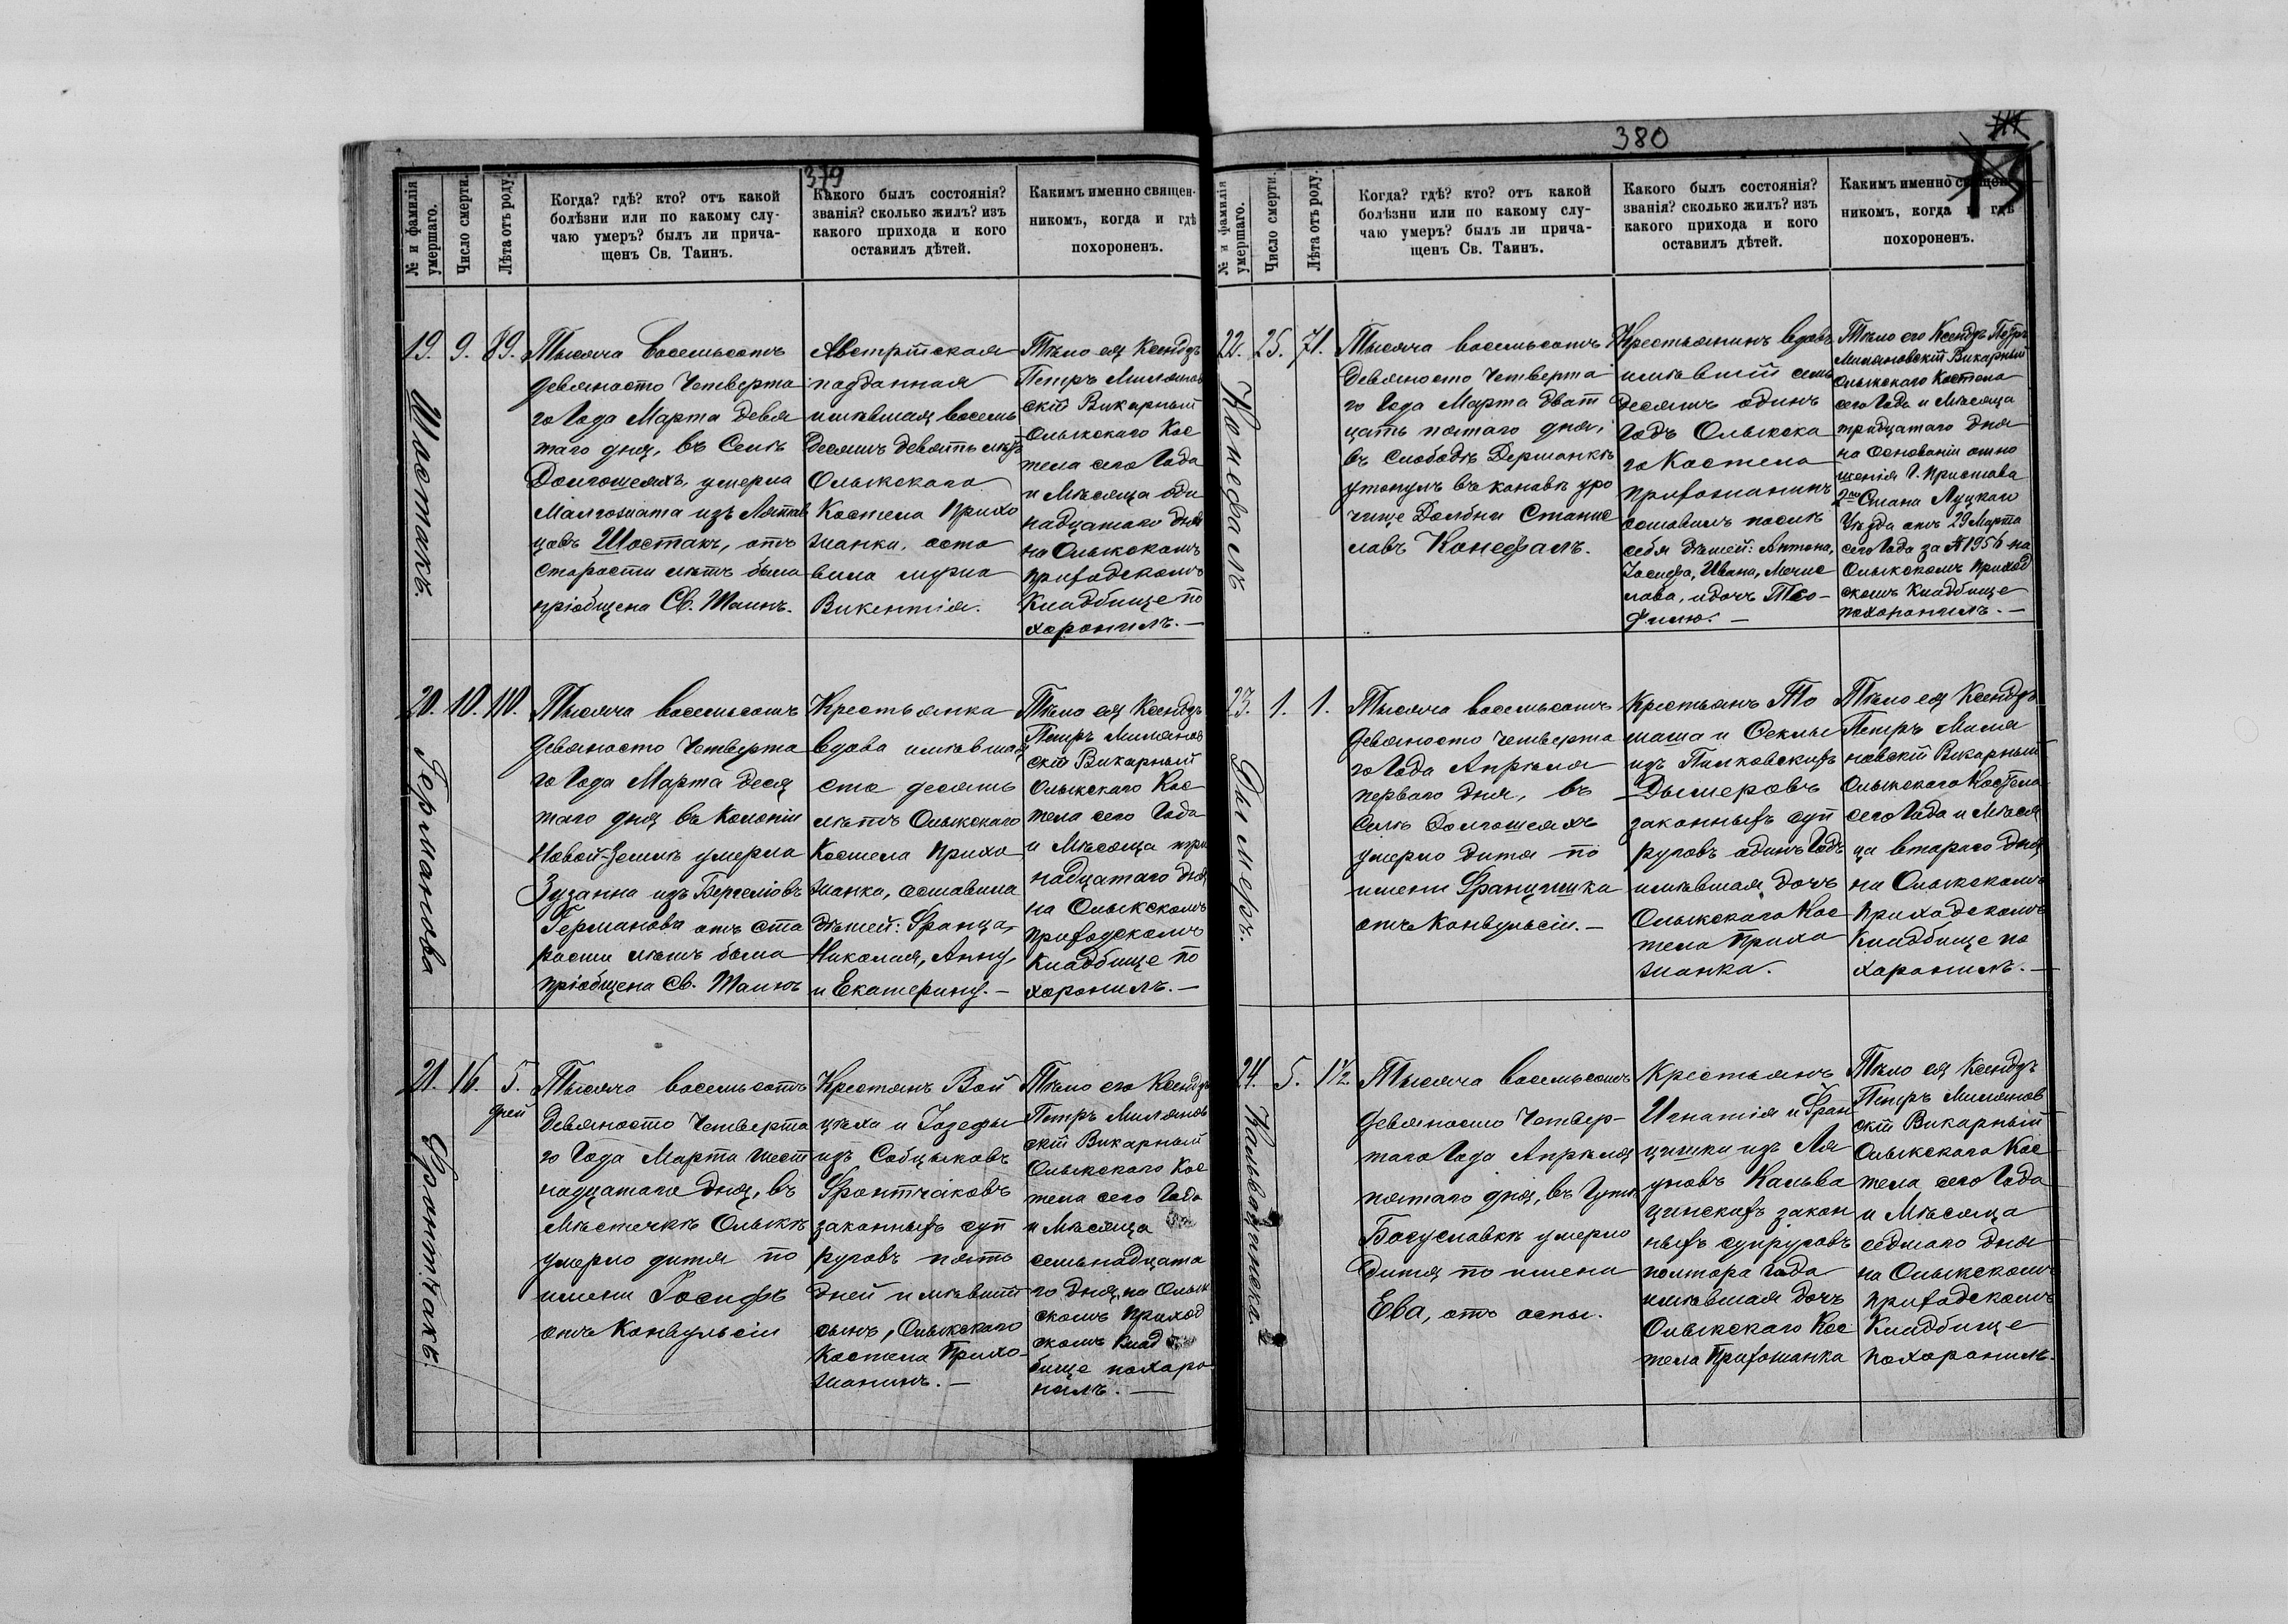 379
№ и фамилія умершаго.
Число смерти.
Лѣта отъ роду.
Когда? гдѣ? кто? отъ какой
болѣзни или по какому слу-
чаю умеръ? былъ ли прича-
щенъ Св. Таинъ.
Какого былъ состоянія?
званія? сколько жилъ? изъ
какого прихода и кого
оставилъ дѣтей.
Какимъ именно священ-
никомъ, когда и гдѣ
похороненъ.
19.
Шостакъ.
9.
89.
Тысяча восемьсотъ
девяносто Четверта
го Года Марта девя
таго дня, въ Селѣ
Долгошеяхъ, умерла
Малгожата изъ
цовъ Шостакъ, отъ
старости лѣтъ была
пріобщена Св. Таинъ.
Австрійская
подданная
имѣвшая восемь
десятъ девять лѣтъ
Олыкскаго
Костела Прихо
жанка, оста
вила мужа
Викентія.
Тѣло ея Ксендзъ
Петръ Милянов
скій Викарный
Олыкскаго Кос
тела сего Года
и Мѣсяца оди
надцатаго дня
на Олыкскомъ
приходскомъ
Кладбище по
хоронилъ. —
20.
Германова
10.
110.
Тысяча восемьсотъ
девяносто Четверта
го Года Марта деся
таго дня въ Колоніи
Новой-Землѣ умерла
Зузанна изъ
Германова отъ ста
рости лѣтъ была
пріобщена Св. Таинъ
Крестьянка
вдова имѣвшая
сто десять
лѣтъ Олыкскаго
Костела Прихо
жанка, оставила
дѣтей: Франца,
Николая, Анну,
и Екатерину. —
Тѣло ея Ксендзъ
Петръ Милянов
скій Викарный
Олыкскаго Кос
тела сего Года
и Мѣсяца три
надцатаго дня
на Олыкскомъ
приходскомъ
Кладбище по
хоронилъ. —
21.
Фронтчакъ.
16.
5.
дней
Тысяча восемьсотъ
девяносто Четверта
го Года Марта шест
надцатаго дня, въ
Мѣстечкѣ Олыкѣ
умерло дитя по
имени Іосифъ
отъ Конвульсіи
Крестянъ Вой
цѣха и Іозефы
изъ Собцыковъ
Фронтчаковъ
законныхъ суп
руговъ пять
дней имѣвшій
сынъ, Олыкскаго
Костела Прихо-
жанинъ. —
Тѣло его Ксендзъ
Петръ Милянов
скій Викарный
Олыкскаго Кос
тела сего Года
и Мѣсяца
семьнадцата
го дня, на Олык
скомъ Приход
скомъ Клад
бище похоро
нилъ. —
380
№ и фамилія умершаго.
Число смерти.
Лѣта отъ роду.
Когда? гдѣ? кто? отъ какой
болѣзни или по какому слу-
чаю умеръ? былъ ли прича-
щенъ Св. Таинъ.
Какого былъ состоянія?
званія? сколько жилъ? изъ
какого прихода и кого
оставилъ дѣтей.
Какимъ именно священ-
никомъ, когда и гдѣ
похороненъ.
22.
Конефалъ
25.
71.
Тысяча восемьсотъ
девяносто Четверта
го Года Марта двад
цать пятаго дня,
въ Слободѣ Дерманкѣ
утонулъ въ канавѣ уро
чище Долбни Станис
лавъ Конефалъ.
Крестьянинъ вдовъ
имѣвшій семь
десятъ одинъ
Годъ Олыкска
го Костела
Прихожанинъ
оставилъ послѣ
себя дѣтей: Антона,
Іосифа, Ивана, Мечис
лава, и дочь Тео-
филю. —
Тѣло его Ксендзъ Петръ
Миляновскій Викарный
Олыкскаго Костела
сего Года и Мѣсяца
тридцатаго дня
на Основаніи отно
шенія Г. Пристава
2го Стана Луцкаго
Уѣзда отъ 29 Марта
сего Года за № 1956 на
Олыкскомъ приход
скомъ Кладбище
похоронилъ. —
23.
Дымеръ.
1.
1.
Тысяча восемьсотъ
девяносто четверта
го Года Апрѣля
перваго дня, въ
Селѣ Долгошеяхъ
умерло дитя по
имени Францишка
отъ Конвульсіи. —
Крестьянъ То
маша и Феклы
изъ Палковскихъ
Дымеровъ
законныхъ суп
руговъ одинъ Годъ
имѣвшая дочь
Олыкскаго Кос
тела Прихо
жанка.
Тѣло ея Ксендзъ
Петръ Миля
новскій Викарный
Олыкскаго Костела
сего Года и Мѣся
ца втораго дня
на Олыкскомъ
приходскомъ
Кладбище по
хоронилъ. —
24.
Кальвоцинска
5.
1½
Тысяча восемьсотъ
девяносто Четвер-
таго Года Апрѣля
пятаго дня, въ Гутѣ
Богуславкѣ умерло
дитя по имени
Ева, отъ оспы.
Крестьянъ
Игнатія и Фран
цишки изъ Ля
Кальва
цинскихъ закон
ныхъ супруговъ
полтора Года
имѣвшая дочь
Олыкскаго Кос
тела Прихожанка
Тѣло ея Ксендзъ
Петръ Милянов
скій Викарный
Олыкскаго Кос
тела сего Года
и Мѣсяца
седмаго дня
на Олыкскомъ
приходскомъ
Кладбище
похоронилъ.